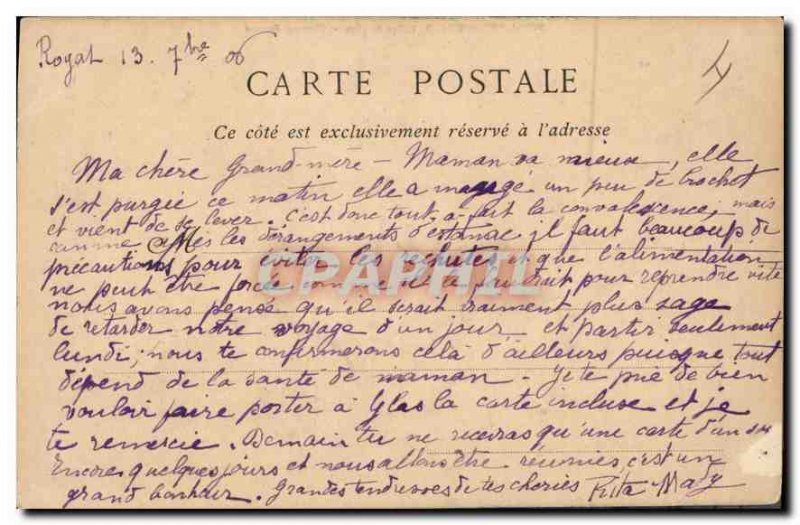 Royat 13. 7bre 06
CARTE POSTALE
Ce côté est exclusivement réservé à l'adresse
Ma chère Grand-mère – Maman va mieux, elle
s'est purgée ce matin elle a mangé un peu de brochet
et vient de se lever. C'est donc tout-à-fait la convalescence; mais
comme après les dérangements d'estomac il faut beaucoup de
précautions pour éviter les rechutes et que l'alimentation
ne peut être forcée comme il le faudrait pour reprendre vite
nous avons pensé qu'il serait vraiment plus sage
de retarder notre voyage d'un jour et partir seulement
lundi; nous te confirmerons celà d'ailleurs puisque tout
dépend de la santé de maman. Je te prie de bien
vouloir faire porter à la carte incluse et je
te remercie. Demain tu ne recevras qu'une carte d'un sou
Encore quelques jours et nous allons être réunies c'est un
grand bonheur. Grandes tendresses de tes chéries Rita-Mady
CPAPHIL